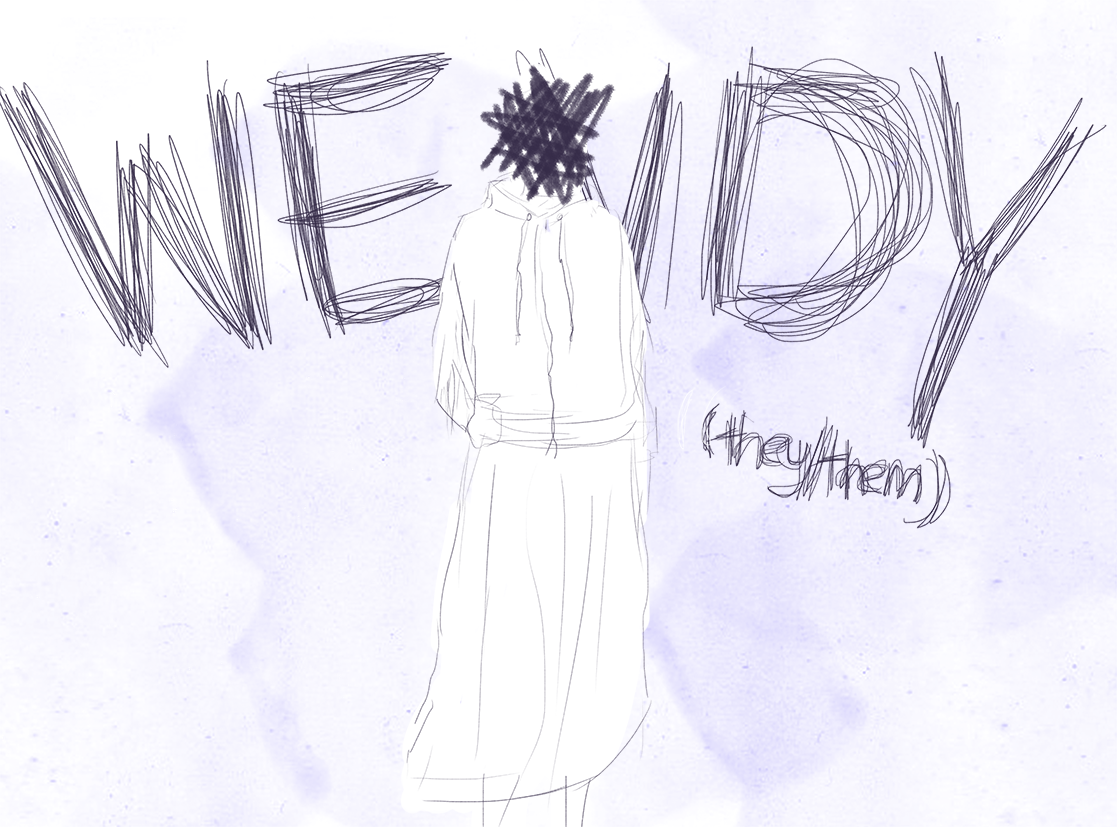 WENDY
(they/them)